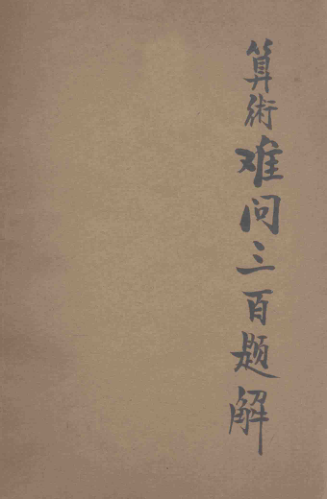 算術难问三百题解